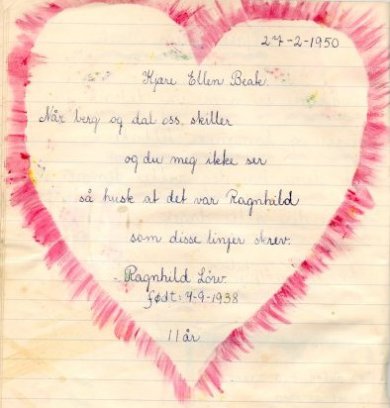 27-2-1950
Kjære Ellen Beate.
Når berg og dal oss skiller
og du meg ikke ser
så husk at det var Ragnhild
som disse linjer skrev.
Ragnhild Löw.
født: 7-9-1938
11 år